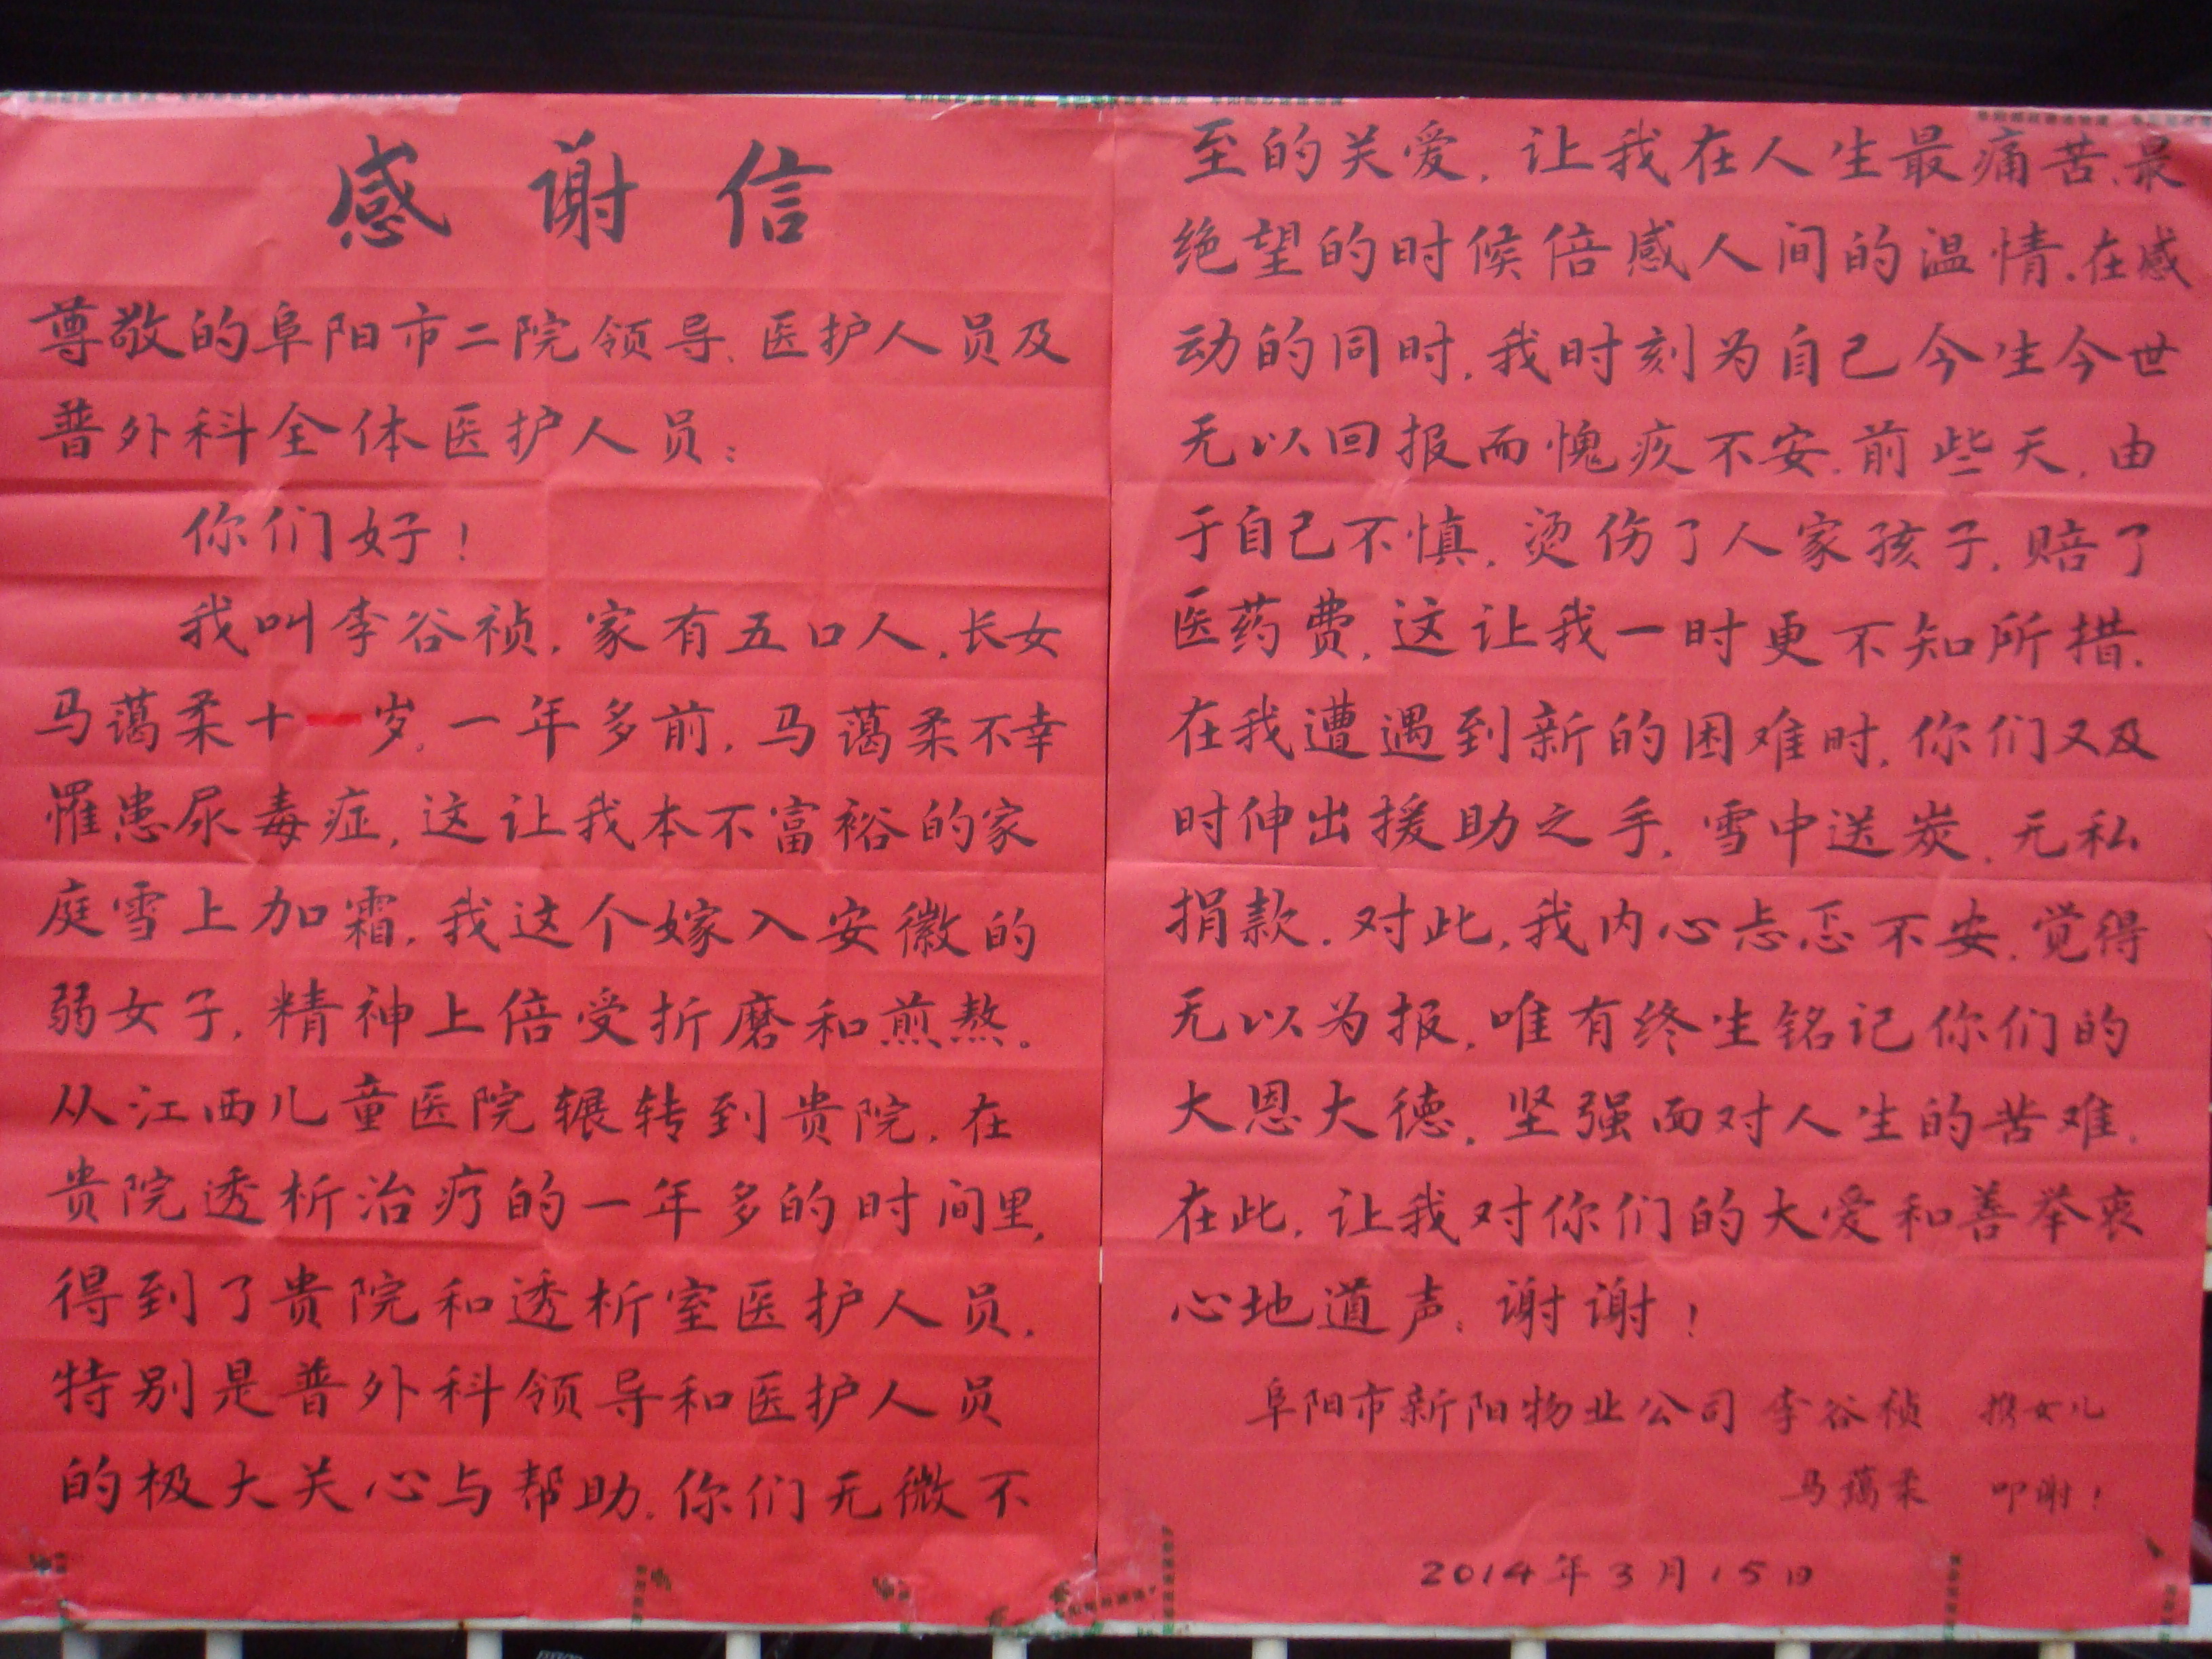 感谢信
尊敬的阜阳市二院领导、医护人员及
普外科全体医护人员：
你们好！
我叫李谷祯，家有五口人，长女
马蔼柔十一岁，一年多前，马蔼柔不幸
罹患尿毒症，这让我本不富裕的家
庭雪上加霜，我这个嫁入安徽的
弱女子，精神上倍受折磨和煎熬。
从江西儿童医院辗转到贵院，在
贵院透析治疗的一年多的时间里，
得到了贵院和透析室医护人员，
特别是普外科领导和医护人员
的极大关心与帮助，你们无微不
至的关爱，让我在人生最痛苦、最
绝望的时候倍感人间的温情，在感
动的同时，我时刻为自己今生今世
无以回报而愧疚不安，前些天，由
于自己不慎，烫伤了人家孩子，赔了
医药费，这让我一时更不知所措，
在我遭遇到新的困难时，你们又及
时伸出援助之手，雪中送炭，无私
捐款，对此，我内心忐忑不安，觉得
无以为报，唯有终生铭记你们的
大恩大德，坚强面对人生的苦难，
在此，让我对你们的大爱和善举衷
心地道声：谢谢！
阜阳市新阳物业公司 李谷祯 携女儿
马蔼柔 叩谢！
2014年3月15日